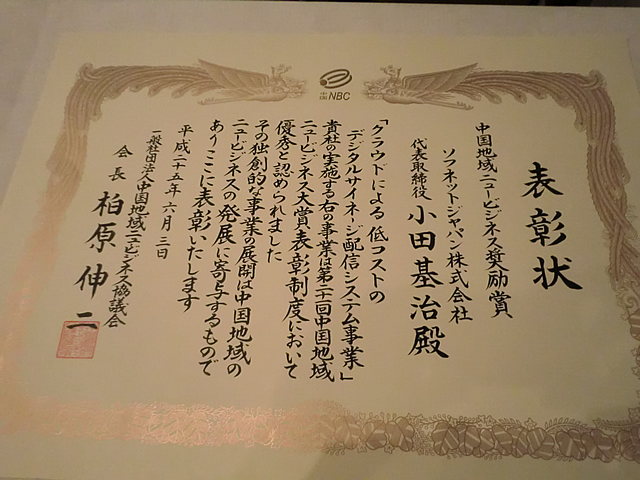 中国 NBC
表彰状
中国地域ニュービジネス奨励賞
ソフネットジャパン株式会社
代表取締役 小田基治殿
「クラウドによる低コストの
デジタルサイネージ配信システム事業」
貴社の実施する右の事業は第二十一回中国地域
ニュービジネス大賞表彰制度において
優秀と認められました
その独創的な事業の展開は中国地域の
ニュービジネスの発展に寄与するもので
あり ここに表彰いたします
平成二十五年六月三日
一般社団法人中国地域ニュービジネス協議会
会長 柏原伸二